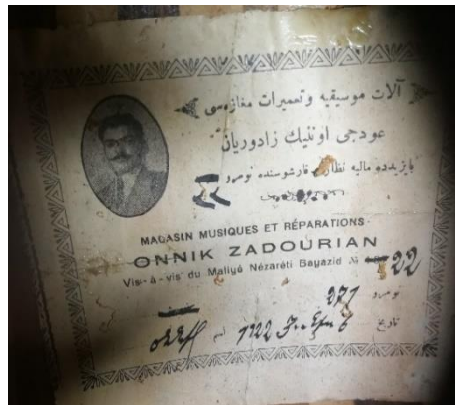 آلات موسیقیه وتعمیرات مغازه‌سی
عودجی اونیك زادوریان
بایزیدده مالیه نظارتی قارشوسنده نومرو
MAGASIN MUSIQUES ET RÉPARATIONS
ONNIK ZADOURIAN
Vis-à-vis du Maliyé Nézaréti Bayazid № 22
نومرو 271
تاریخ